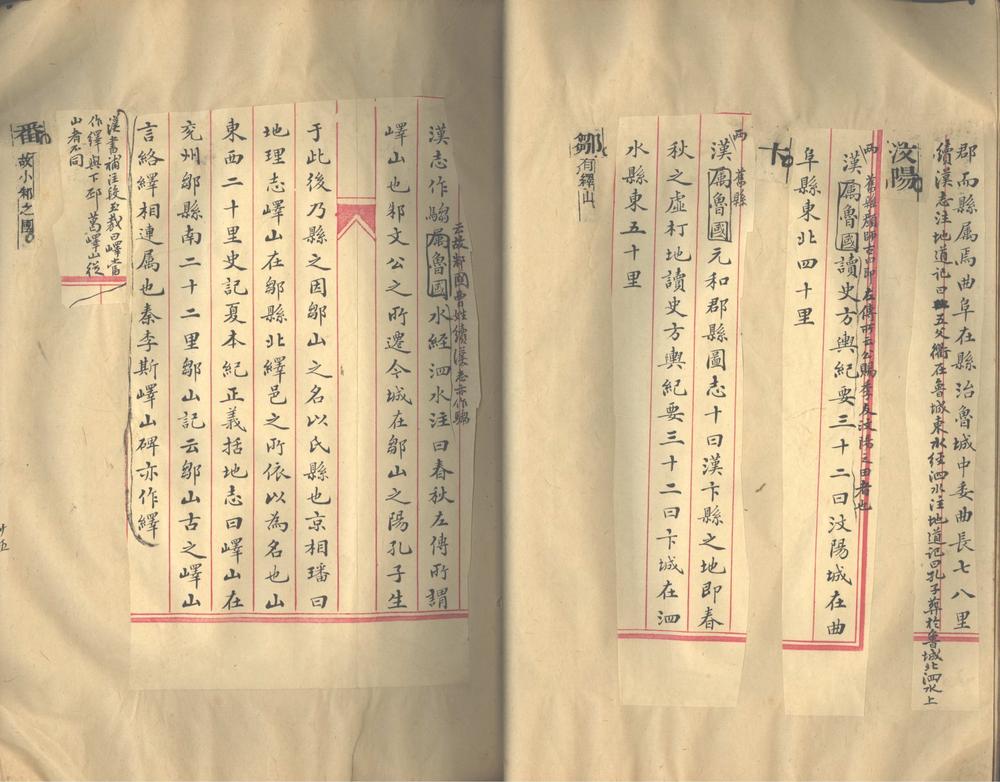 郡而縣屬焉曲阜在縣治魯城中委曲長七八里
續漢志注地道記曰五父衢在魯城東水經泗水注地道記曰孔子葬於魯城北泗水上
汶陽
舊縣顏師古曰即左傳所云公賜季友汶陽之田者也
漢屬魯國讀史方輿紀要三十二曰汶陽城在曲
阜縣東北四十里
卞
兩舊縣
漢屬魯國元和郡縣圖志十曰漢卞縣之地即春
秋之虛朾地讀史方輿紀要三十二曰卞城在泗
水縣東五十里
鄒有繹山
云故邾國曹姓續漢志亦作騶
漢志作騶屬魯國水經泗水注曰春秋左傳所謂
嶧山也邾文公之所遷今城在鄒山之陽孔子生
于此後乃縣之因鄒山之名以氏縣也京相璠曰
地理志嶧山在鄒縣北繹邑之所依以為名也山
東西二十里史記夏本紀正義括地志曰嶧山在
兗州鄒縣南二十二里鄒山記云鄒山古之嶧山
言絡繹相連屬也秦李斯嶧山碑亦作繹
漢書補注段玉裁曰嶧當
作繹與下邳葛嶧山從
山者不同
番故小邾之國